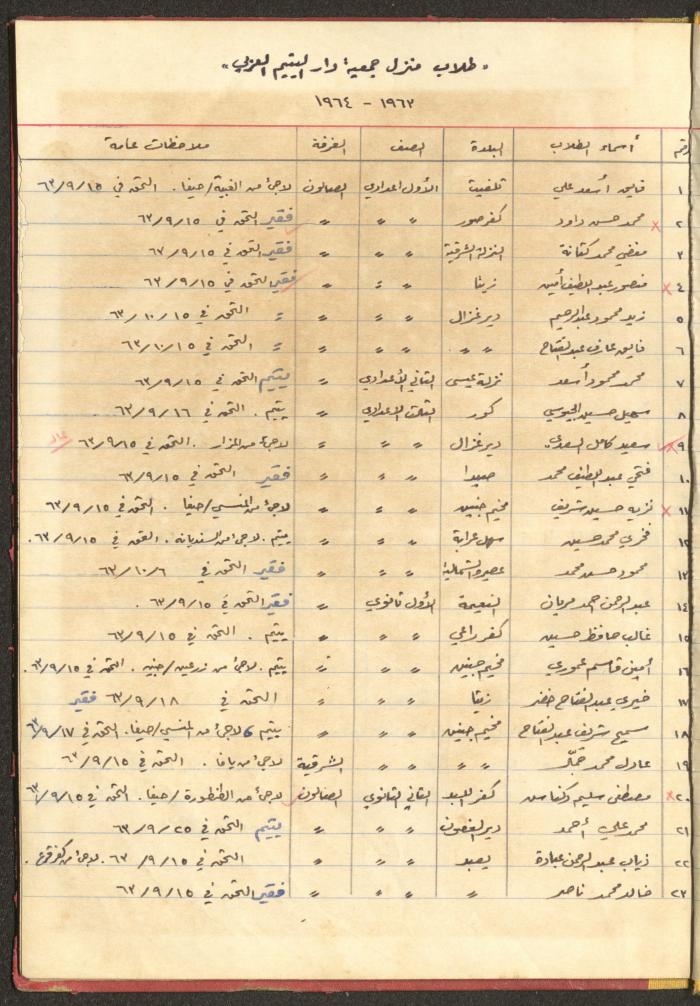 « طلاب منزل جمعية دار اليتيم العربي »
١٩٦٣ - ١٩٦٤
رقم أسماء الطلاب البلدة الصف الغرفة ملاحظات عامة
١ فايق أسعد علي تلفيت الأول اعدادي الصالون لاجئ من الغبية/حيفا. التحق في ٦٣/٩/١٥
٢ محمد حسن داود كفر صور " " " فقير التحق في ٦٣/٩/١٥
٣ مفضي محمد كتانة النزلة الشرقية " " " فقير التحق في ٦٣/٩/١٥
٤ منصور عبد اللطيف أمين زيتا " " " فقير التحق في ٦٣/٩/١٥
٥ زيد محمود عبد الرحيم دير غزال " " " " التحق في ٦٣/١٠/١٥
٦ فايق عارف عبد الفتاح " " " " " " التحق في ٦٣/١٠/١٥
٧ محمد محمود أسعد نزلة عيسى الثاني الأعدادي " يتيم التحق في ٦٣/٩/١٥
٨ سهيل حسين الجيوسي كور الثالث الاعدادي " يتيم . التحق في ٦٣/٩/١٦
٩ سعيد كامل السعدي دير غزال " " " لاجئ من المزار . التحق في ٦٣/٩/١٥
١٠ فتحي عبد اللطيف محمد صيدا " " " فقير التحق في ٦٣/٩/١٥
١١ نزيه حسين شريف مخيم جنين " " " لاجئ من المنسي/حيفا . التحق في ٦٣/٩/١٥
١٢ فخري محمد حسين سهل عرابة " " " يتيم . لاجئ من السنديانة . التحق في ٦٣/٩/١٥ .
١٣ محمود حسن محمد عصيرة الشمالية " " " فقير التحق في ٦٣/١٠/٦
١٤ عبد الرحمن احمد مرجان النعيمة الأول ثانوي " فقير التحق في ٦٣/٩/١٥ .
١٥ غالب حافظ حسين كفر راعي " " " يتيم . التحق في ٦٣/٩/١٥
١٦ أمين قاسم عموري مخيم جنين " " " يتيم . لاجئ من زرعين/جنين . التحق في ٦٣/٩/١٥ .
١٧ خيري عبد الفتاح خضر زيتا " " " التحق في ٦٣/٩/١٨ فقير
١٨ سميح شريف عبد الفتاح مخيم جنين " " " يتيم ، لاجئ من المنسي/حيفا . التحق في ٦٣/٩/١٧
١٩ عادل محمد " " " " الشرقية لاجئ من يافا . التحق في ٦٣/٩/١٥
٢٠ مصطفى سليم كفر اللبد الثاني الثانوي الصالون لاجئ من الطنطورة/حيفا . التحق في ٦٣/٩/١٥
٢١ محمد علي أحمد دير الغصون " " " يتيم التحق في ٦٣/٩/٢٥
٢٢ ذياب عبد الرحمن عبادة يعبد " " " التحق في ٦٣/٩/١٥ . لاجئ من كفر قرع .
٢٣ خالد محمد ناصر " " " " فقير التحق في ٦٣/٩/١٥